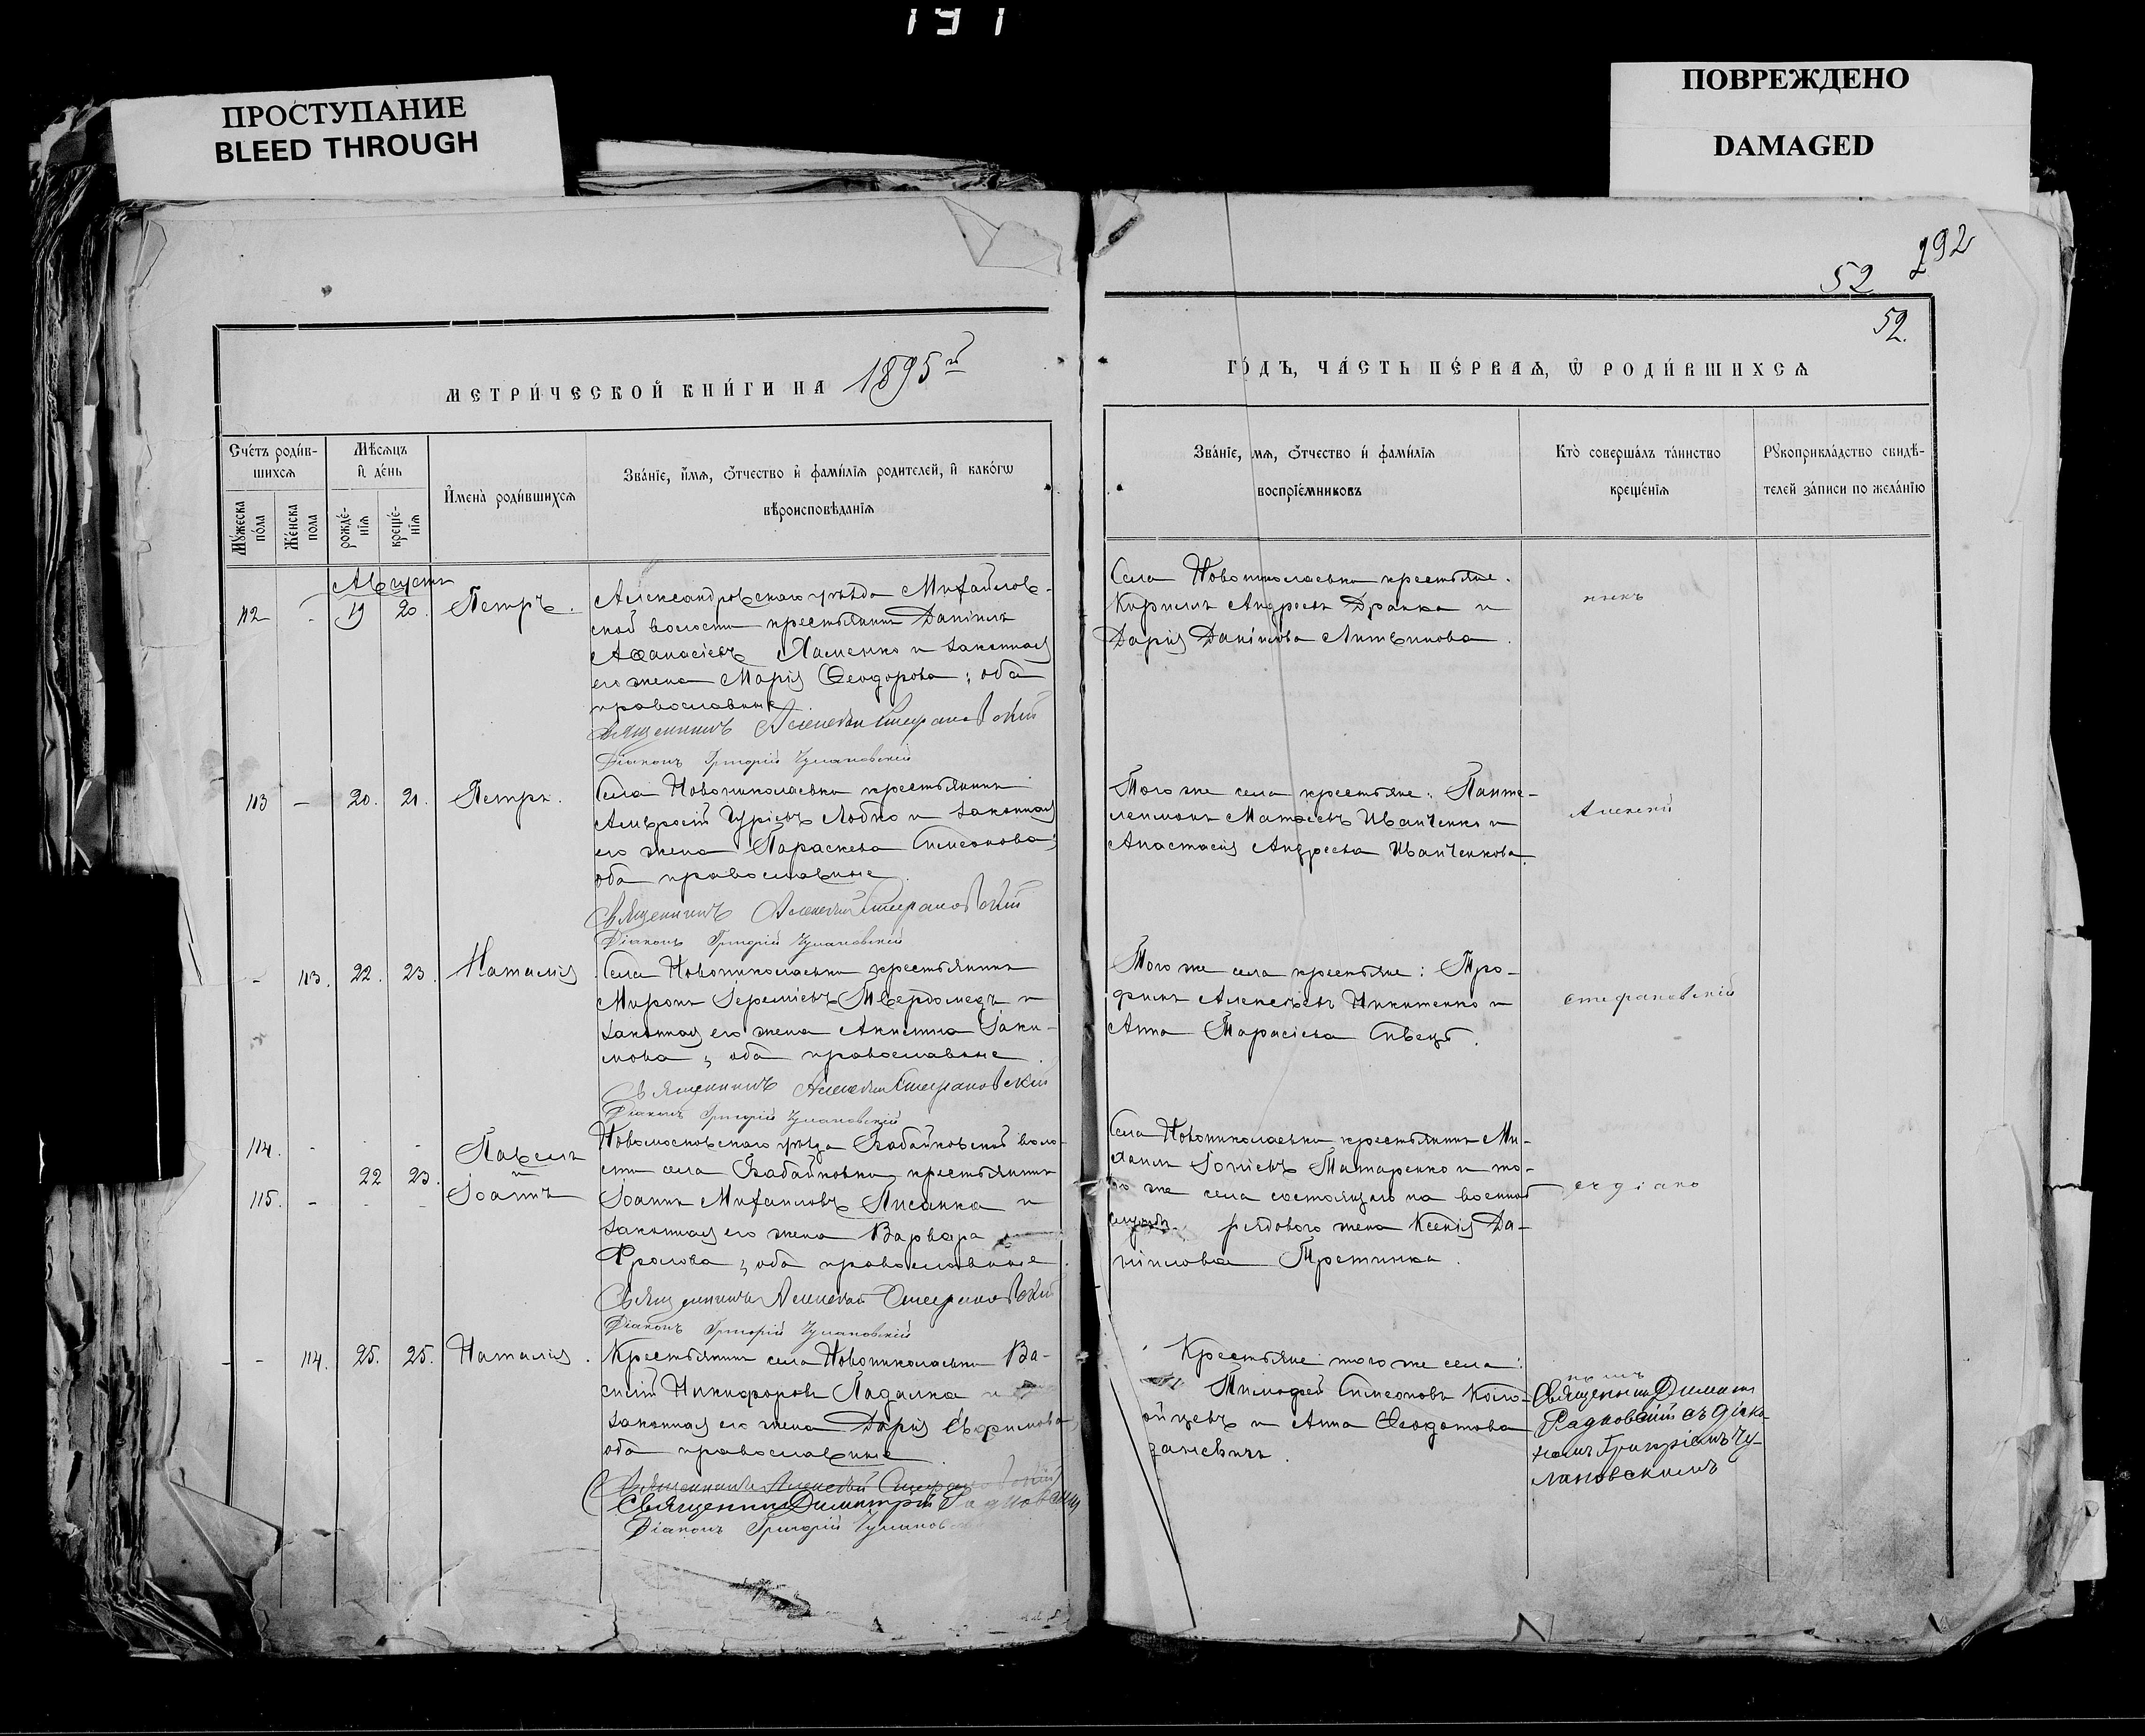 191
ПРОСТУПАНИЕ
BLEED THROUGH
ПОВРЕЖДЕНО
DAMAGED
292
52
52.
МЕТРИ́ЧЕСКОЙ КНИ́ГИ НА 1895й
ГО́ДЪ, ЧА́СТЬ ПЕ́РВАѦ, Ѿ РОДИ́ВШИХСѦ
Сче́тъ роди́в-
шихсѧ
Мѣсѧцъ
и де́нь
Имена̀ роди́вшихсѧ
Зва́нїе, и́мѧ, ѻ́тчество и фами́лїѧ родителей, и како́гѡ
вѣроисповѣданїѧ
Мꙋжеска по́ла
Же́нска пола
рожде́-нїѧ
креще́-нїѧ
Зва́нїе, мѧ, ѻ́тчество и фами́лїѧ
воспрїе́мниковъ
Кто̀ соверша́лъ та́инство
креще́нїѧ
Рꙋкоприкла́дство свидѣ́-
телей за́писи по жела́нїю
Августъ
112 - 19 20. Петръ.
Александровскаго уѣзда Михайлов-
ской волости крестьянинъ Даніилъ
Аѳанасіевъ и законная
его жена Марія Ѳеодорова; оба
православные.
Священникъ Алексѣй Стефановскій
Діаконъ Григорій Чулановскій
Села Новониколаевки крестьяне:
Кириллъ Андреевъ Драпка и
Дарія Даніилова Литвинова.
никъ
113 - 20. 21. Петръ.
Села Новониколаевки крестьянинъ
Амвросій Гуріевъ Лобко и законная
его жена Параскева Симеонова;
оба православные.
Священникъ Алексѣй Стефановскій
Діаконъ Григорій Чулановскій
Того же села крестьяне: Панте-
леимонъ Матѳіевъ Иванченко и
Анастасія Андреева Иванченкова.
Алексѣй
- 113. 22. 23. Наталія
Села Новониколаевки крестьянинъ
Миронъ Іереміевъ Твердомедъ и
законная его жена Акилина Іаки-
мова; оба православные.
Священникъ Алексѣй Стефановскій
Діаконъ Григорій Чулановскій
Того же села крестьяне: Тро-
фимъ Алексѣевъ Никитенко и
Анна Тарасіева Швецъ.
Стефановскій
114. - Павелъ
и
22 23.
115. - Іоаннъ
Новомосковскаго уѣзда Бабайковской воло-
сти села Бабайковки крестьянинъ
Іоаннъ Михаиловъ Писанка и
законная его жена Варвара
Фролова; оба православные.
Священникъ Алексѣй Стефановскій
Діаконъ Григорій Чулановскій
Села Новониколаевки крестьянинъ Ми-
хаилъ Татаренко и то-
го же села состоящаго на военной
службѣ рядового жена Ксенія Да-
ніилова
съ діако
- 114. 25. 25. Наталія.
Крестьянинъ села Новониколаевки Ва-
силій Никифоровъ Падалка и
законная его жена Дарія Евфимова;
оба православные.
Священникъ Алексѣй Стефановскій
Священникъ Димитрій Радковскій
Діаконъ Григорій Чулановскій
Крестьяне того же села:
Тимоѳей Симеоновъ
и Анна Ѳеодотова
номъ
Священникъ Димитрій
Радковскій съ діако-
номъ Григоріемъ Чу-
лановскимъ